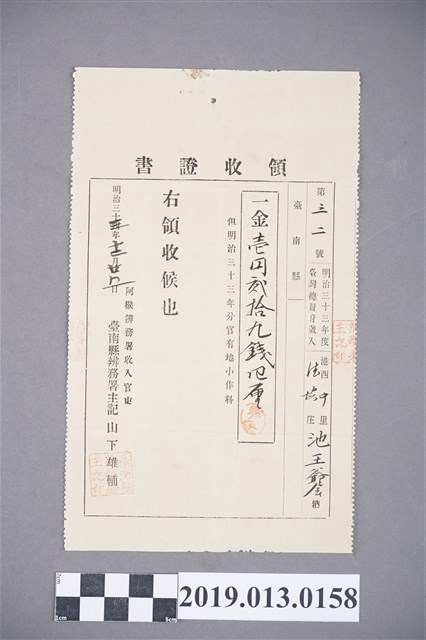 領收證書
第三二號
明治三十三年度
臺灣總督府歲入
港西中里
庄
池王爺会
納
臺南縣
一金壱円弐拾九錢四厘
但明治三十三年分官有地小作料
右領收候也
明治三十年十二月廿八日
阿緱辨務署收入官吏
臺南縣辨務署主記山下雄輔
2cm
1cm
5cm
2019.013.0158